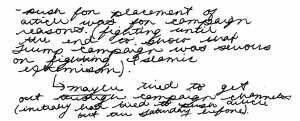 - push for placement of
article was for campaign
reasons. (fighting until
the end to show that
Trump campaign was serious
on fighting Islamic
extremism).
↳ maybe tried to get
out through campaign channels
(initially had tried to push article
out our Saturday before).